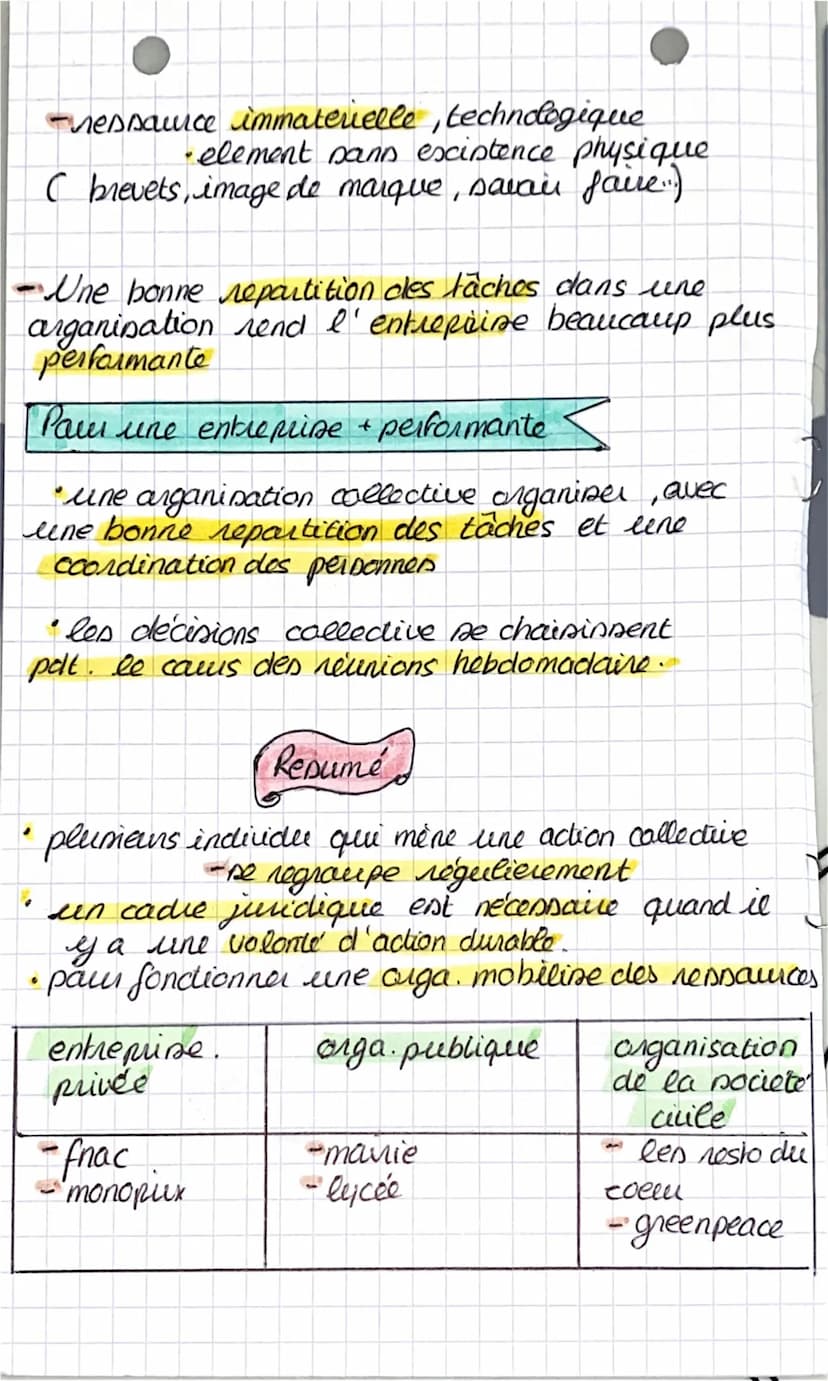 - ressource immaterielle, technologique
• element sans existence physique
( brevets, image de marque, savoir faire...)
- Une bonne repartition des tâches dans une
organisation rend l'entreprise beaucoup plus
performante
Pour une entreprise + performante
• une organisation collective organiser, avec
une bonne repartition des tâches et une
coordination des personnes
• les décisions collective se choisissent
pdt. le cours des réunions hebdomadaire.
Resumé
• plusieurs individu qui mène une action collective
- se regroupe régulierement
• un cadre juridique est nécessaire quand il
y a une volonté d'action durable.
• pour fonctionner une orga. mobilise des ressources
entreprise.
privée
orga. publique
organisation
de la societé
civile
- fnac
- monoprix
- mairie
- lycée
- les resto du
coeur
- greenpeace